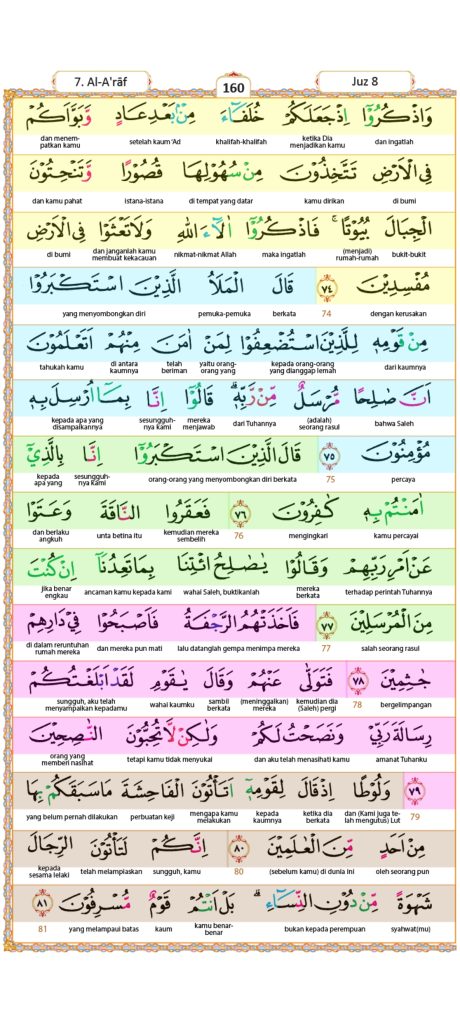 7. Al-A'rāf
160
Juz 8
وَاذْكُرُوْٓا اِذْ جَعَلَكُمْ خُلَفَاۤءَ مِنْۢ بَعْدِ عَادٍ وَّبَوَّاَكُمْ
dan ingatlah ketika Dia menjadikan kamu khalifah-khalifah setelah kaum ‘Ad dan menem-patkan kamu
فِى الْاَرْضِ تَتَّخِذُوْنَ مِنْ سُهُوْلِهَا قُصُوْرًا وَّتَنْحِتُوْنَ
di bumi kamu dirikan di tempat yang datar istana-istana dan kamu pahat
الْجِبَالَ بُيُوْتًا ۚ فَاذْكُرُوْٓا اٰلَاۤءَ اللّٰهِ وَلَا تَعْثَوْا فِى الْاَرْضِ
bukit-bukit (menjadi) rumah-rumah maka ingatlah nikmat-nikmat Allah dan janganlah kamu membuat kekacauan di bumi
مُفْسِدِيْنَ ٧٤ قَالَ الْمَلَاُ الَّذِيْنَ اسْتَكْبَرُوْا
dengan kerusakan 74 berkata pemuka-pemuka yang menyombongkan diri
مِنْ قَوْمِهٖ لِلَّذِيْنَ اسْتُضْعِفُوْا لِمَنْ اٰمَنَ مِنْهُمْ اَتَعْلَمُوْنَ
dari kaumnya kepada orang-orang yang dianggap lemah yaitu orang-orang yang telah beriman di antara kaumnya tahukah kamu
اَنَّ صٰلِحًا مُّرْسَلٌ مِّنْ رَّبِّهٖۗ قَالُوْٓا اِنَّا بِمَآ اُرْسِلَ بِهٖ
bahwa Saleh (adalah) seorang rasul dari Tuhannya mereka menjawab sesungguh-nya kami kepada apa yang disampaikannya
مُؤْمِنُوْنَ ٧٥ قَالَ الَّذِيْنَ اسْتَكْبَرُوْٓا اِنَّا بِالَّذِيْٓ
percaya 75 orang-orang yang menyombongkan diri berkata sesungguh-nya kami kepada apa yang
اٰمَنْتُمْ بِهٖ كٰفِرُوْنَ ٧٦ فَعَقَرُوا النَّاقَةَ وَعَتَوْا
kamu percayai mengingkari 76 kemudian mereka sembelih unta betina itu dan berlaku angkuh
عَنْ اَمْرِ رَبِّهِمْ وَقَالُوْا يٰصٰلِحُ ائْتِنَا بِمَا تَعِدُنَآ اِنْ كُنْتَ
terhadap perintah Tuhannya mereka berkata wahai Saleh, buktikanlah ancaman kamu kepada kami jika benar engkau
مِنَ الْمُرْسَلِيْنَ ٧٧ فَاَخَذَتْهُمُ الرَّجْفَةُ فَاَصْبَحُوْا فِيْ دَارِهِمْ
salah seorang rasul 77 lalu datanglah gempa menimpa mereka dan mereka pun mati di dalam reruntuhan rumah mereka
جٰثِمِيْنَ ٧٨ فَتَوَلّٰى عَنْهُمْ وَقَالَ يٰقَوْمِ لَقَدْ اَبْلَغْتُكُمْ
bergelimpangan 78 kemudian dia (Saleh) pergi (meninggalkan) mereka sambil berkata wahai kaumku sungguh, aku telah menyampaikan kepadamu
رِسَالَةَ رَبِّيْ وَنَصَحْتُ لَكُمْ وَلٰكِنْ لَّا تُحِبُّوْنَ النّٰصِحِيْنَ
amanat Tuhanku dan aku telah menasihati kamu tetapi kamu tidak menyukai orang yang memberi nasihat
٧٩ وَلُوْطًا اِذْ قَالَ لِقَوْمِهٖٓ اَتَأْتُوْنَ الْفَاحِشَةَ مَا سَبَقَكُمْ بِهَا
79 dan (Kami juga te-lah mengutus) Lut ketika dia berkata kepada kaumnya mengapa kamu melakukan perbuatan keji yang belum pernah dilakukan
مِنْ اَحَدٍ مِّنَ الْعٰلَمِيْنَ ٨٠ اِنَّكُمْ لَتَأْتُوْنَ الرِّجَالَ
oleh seorang pun (sebelum kamu) di dunia ini 80 sungguh, kamu telah melampiaskan kepada sesama lelaki
شَهْوَةً مِّنْ دُوْنِ النِّسَاۤءِۗ بَلْ اَنْتُمْ قَوْمٌ مُّسْرِفُوْنَ ٨١
syahwat(mu) bukan kepada perempuan kamu benar-benar kaum yang melampaui batas 81